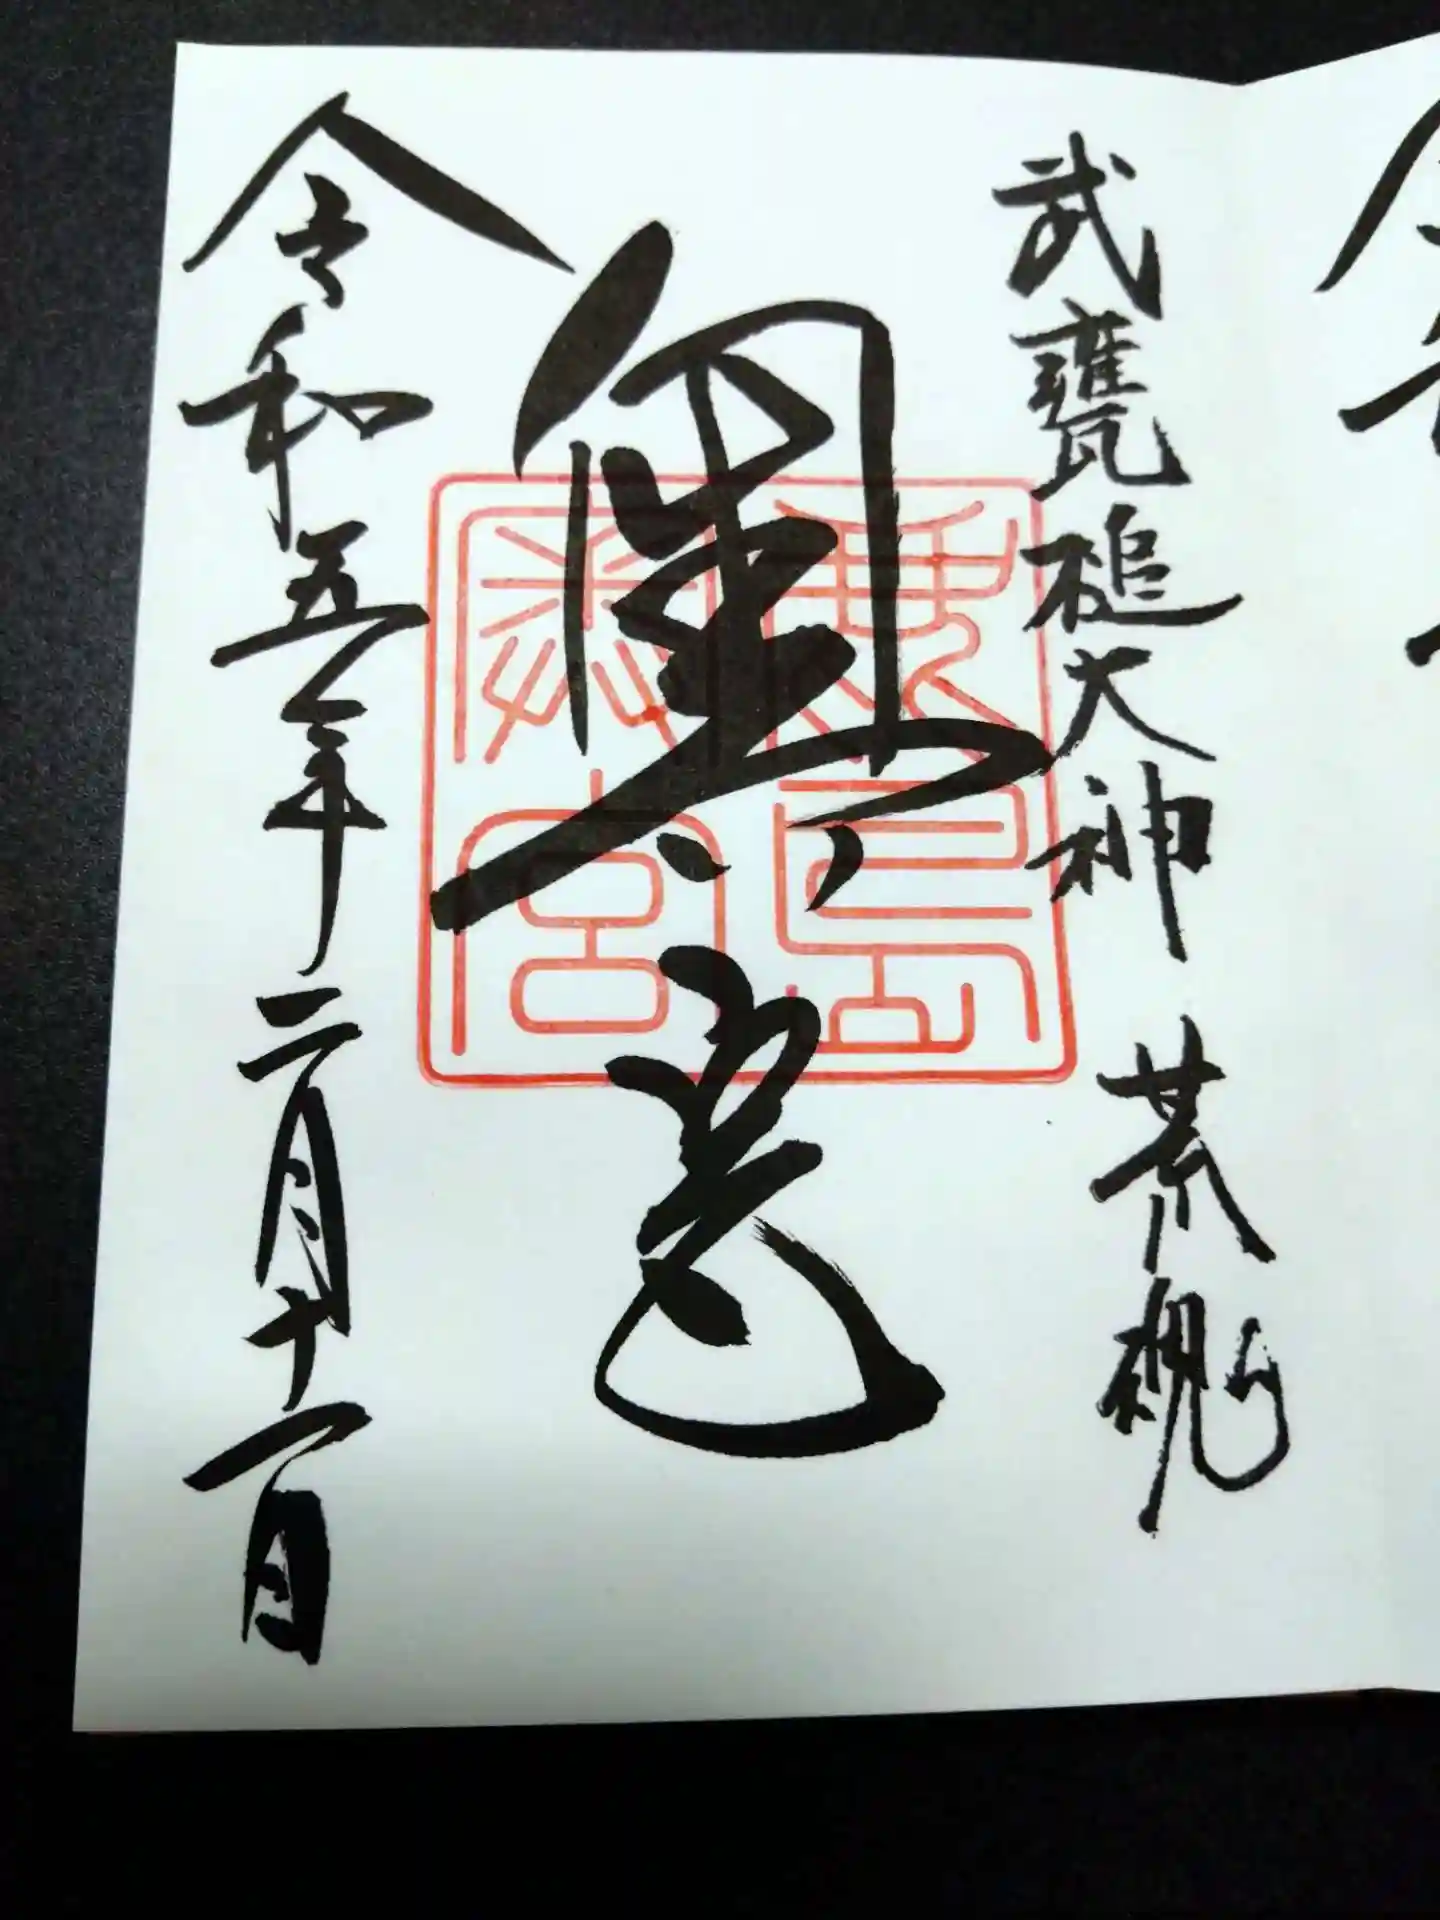 武甕槌大神 荒魂
奥宮
鹿島神宮
令和五年二月十一日